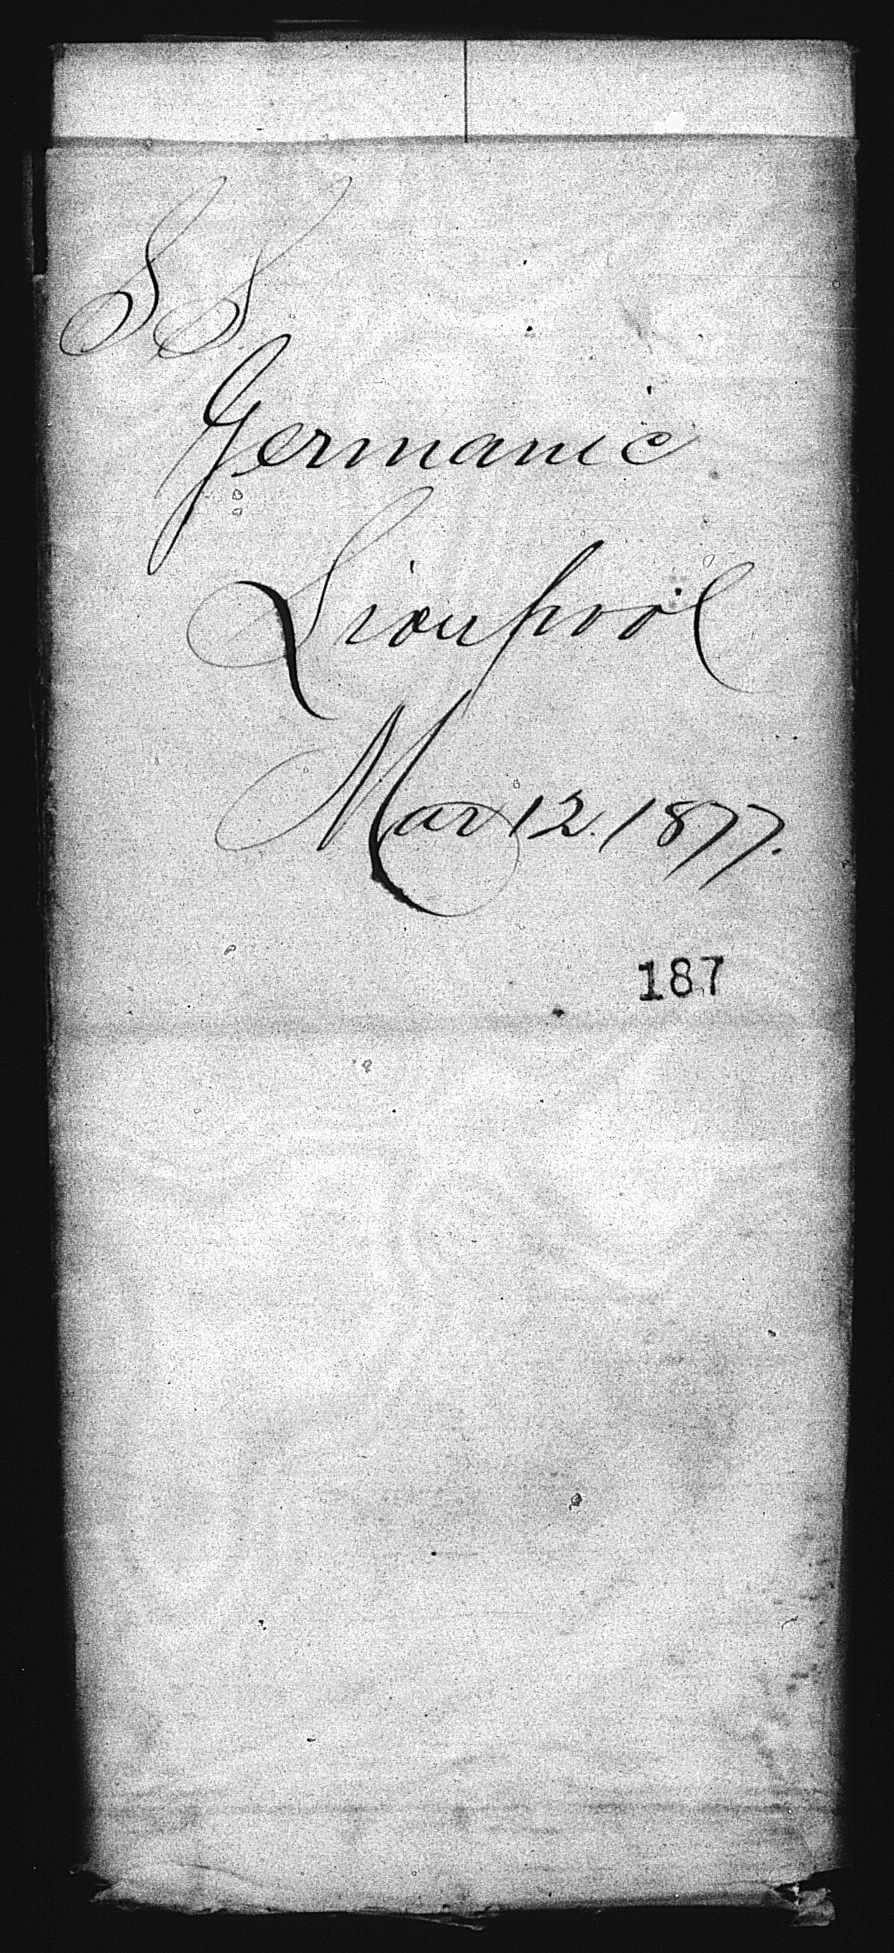 SS
Germanic
Liverpool
Mar 12. 1877.
187